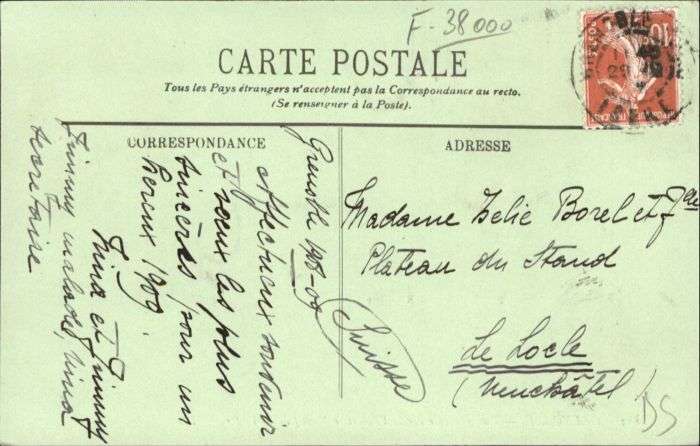 F-38000
CARTE POSTALE
Tous les Pays étrangers n'acceptent pas la Correspondance au recto.
(Se renseigner à la Poste).
CORRESPONDANCE
ADRESSE
Grenoble 1908-09
affectueux souvenir
et voeux les plus
sincères pour un
heureux 1909.
Nina et Jimmy
Jimmy malade, Nina
secrétaire
Madame Zélie Borel et fille
Plateau du Stand
Le Locle
(Neuchâtel)
Suisse
DS
10